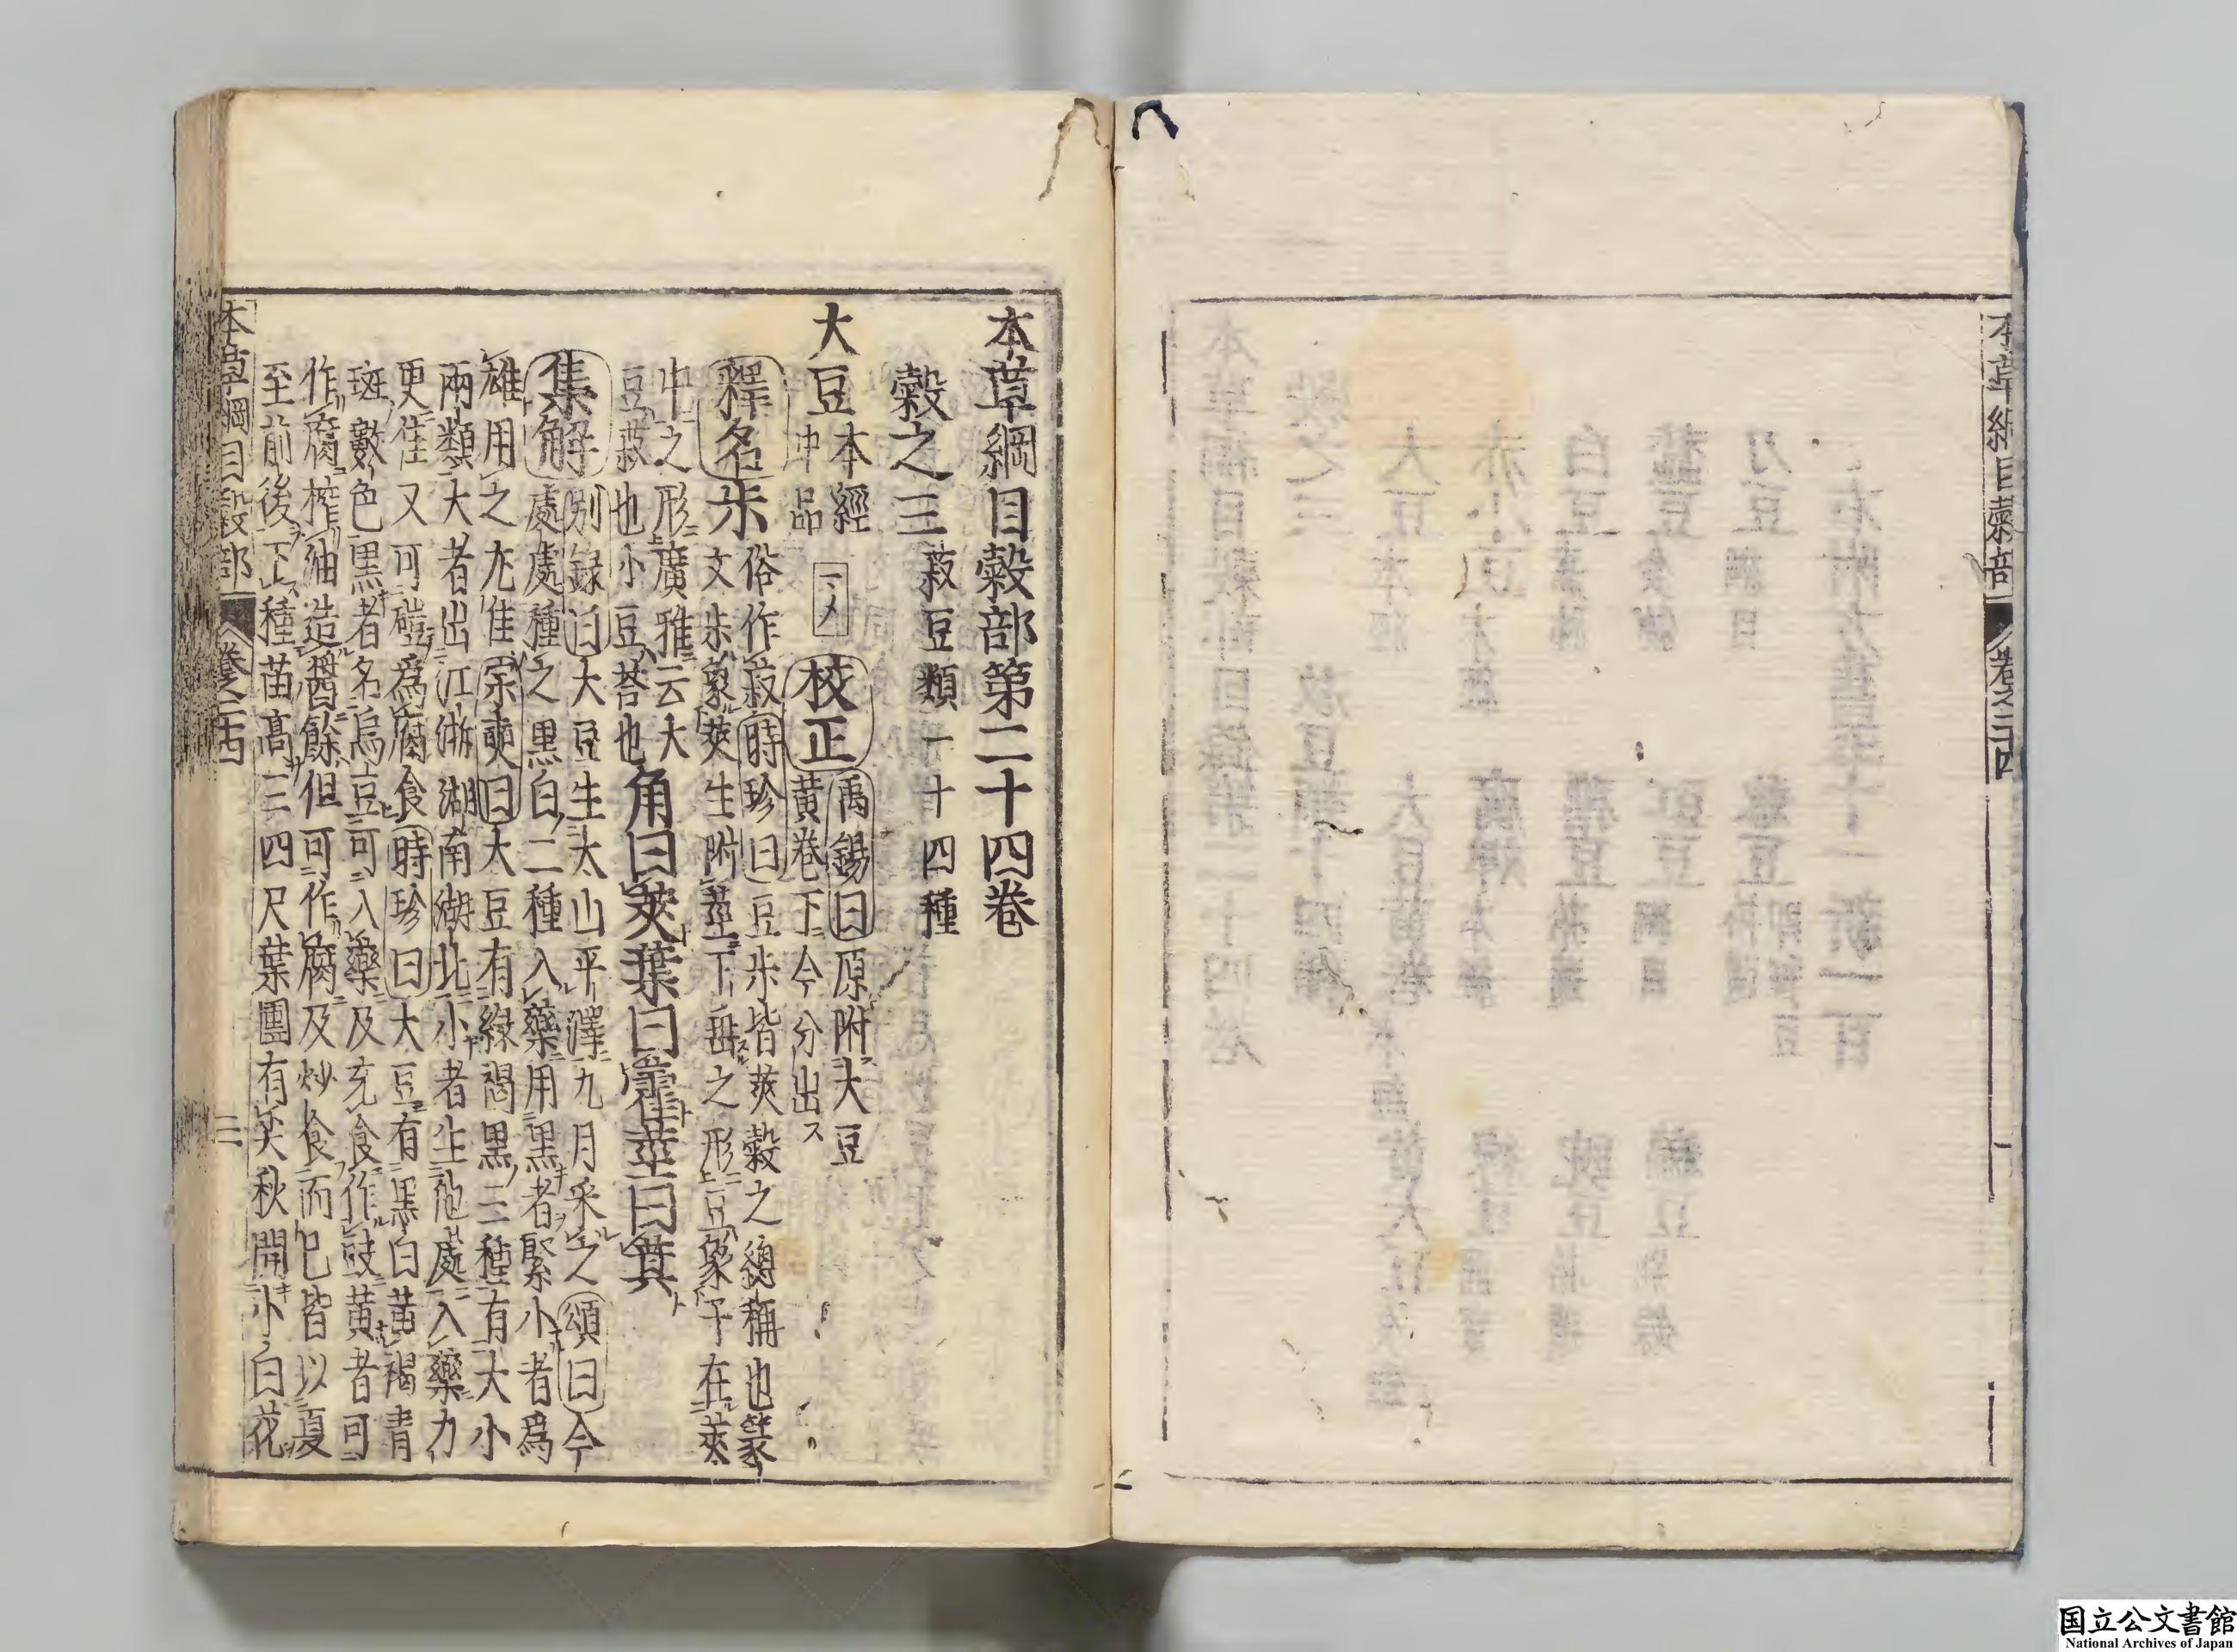 本草綱目穀部
卷之二十四
本草綱目穀部第二十四卷
穀之三 菽豆類一十四種
大豆 本經中品 校正 禹錫曰原附大豆
黃卷下今分出ス
釋名尗 俗作菽時珍曰豆尗皆莢穀之總稱也篆
文尗象莢生附莖下垂之形豆象子在莢
中之形廣雅云大
豆菽也小豆荅也 角曰莢葉曰藿莖曰萁
集解 別錄曰大豆生太山平澤九月采之頌曰今
處處種之黑白二種入藥用黑者緊小者爲
雄用之尤佳宗奭曰大豆有緑褐黑三種有大小
兩類大者出江浙湖南湖北小者生他處入藥力
更佳又可磑爲腐食時珍曰大豆有黑白黃褐青
斑數色黑者名烏豆可入藥及充食作豉黃者可
作腐榨油造醬餘但可作腐及炒食而已皆以夏
至前後下種苗高三四尺葉團有尖秋開小白花
本草綱目穀部 卷之二十四 三
国立公文書館
National Archives of Japan